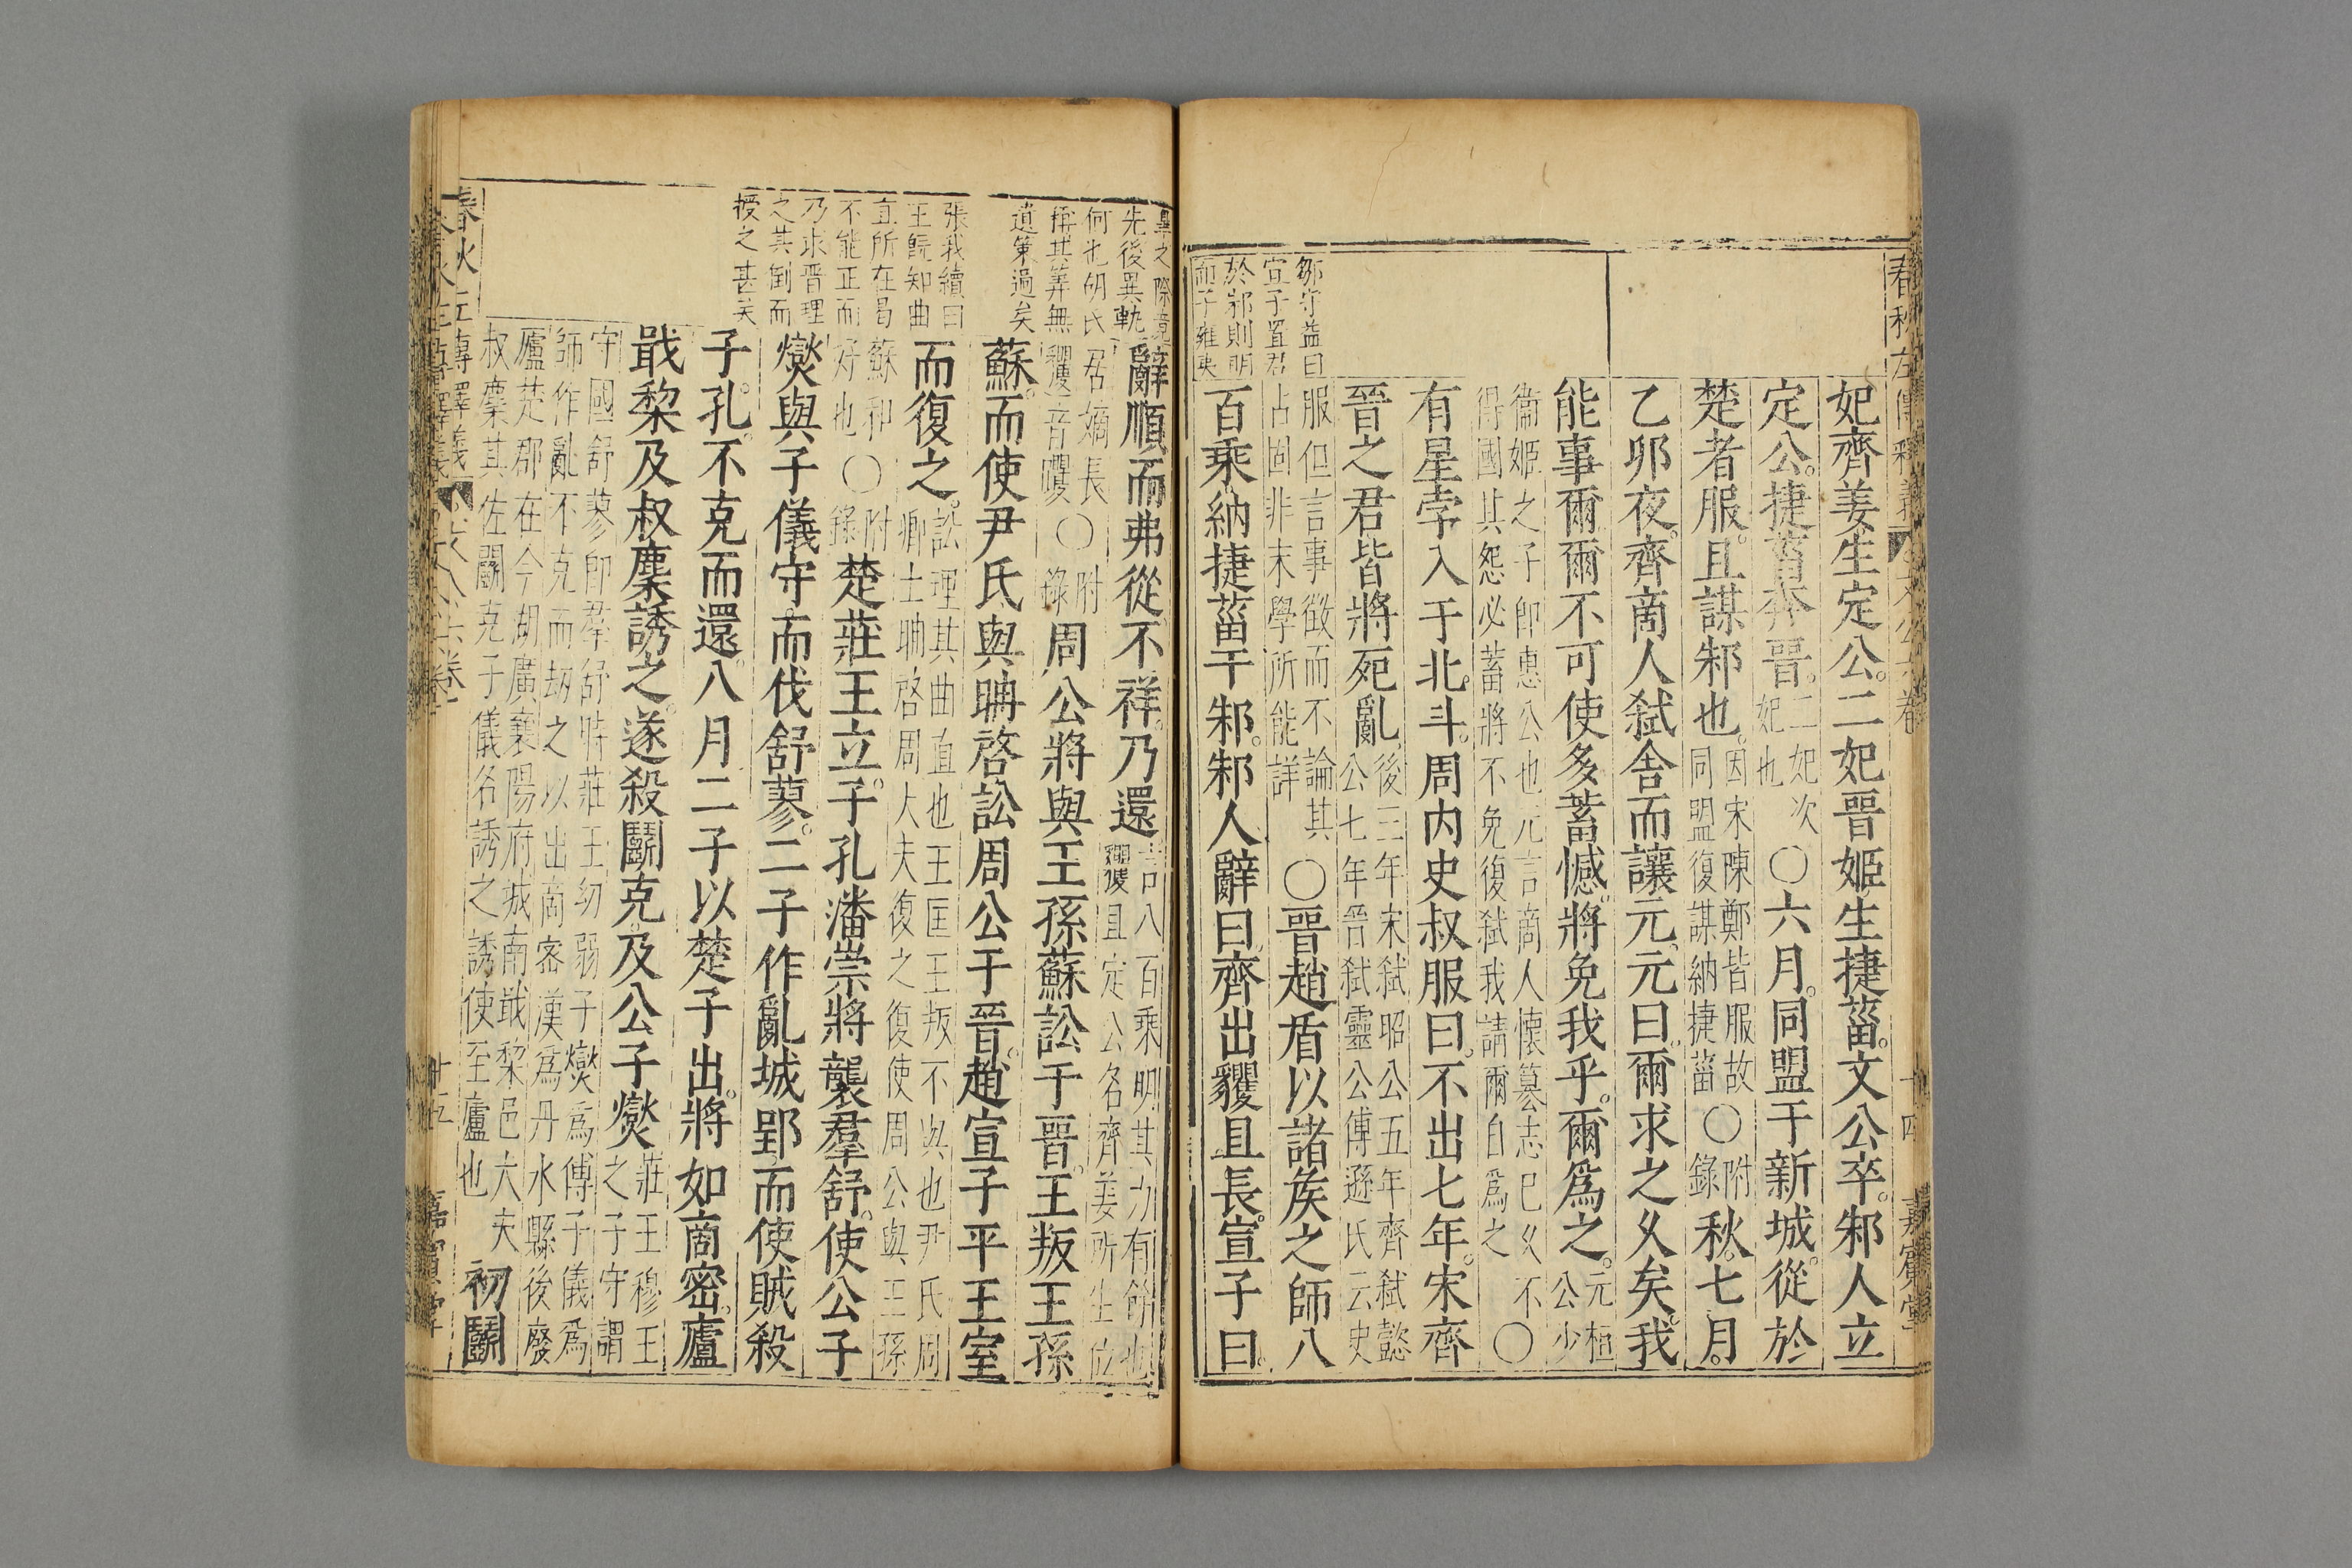 春秋左傳釋義 文公六卷 十四 嘉賓堂
妃齊姜生定公。二妃晉姬生捷菑。文公卒。邾人立
定公。捷菑奔晉。二妃次妃也〇六月。同盟于新城。從於
楚者服。且謀邾也。因宋陳鄭皆服故同盟復謀納捷菑〇附錄秋。七月。
乙卯夜。齊啇人弑舍而讓元。元曰。爾求之乆矣。我
能事爾爾不可使多蓄憾。將免我乎。爾爲之。元桓公少
衞姬之子即惠公也元言啇人懷簒志已乆不
得國其怨必蓄將不免復弑我請爾自爲之〇
有星孛入于北斗。周内史叔服曰。不出七年。宋齊
晉之君皆將死亂。後三年宋弑昭公五年齊弑懿公七年晉弑靈公傅遜氏云史
服但言事徵而不論其占固非末學所能詳〇晉趙盾以諸矦之師八
百乘。納捷菑于邾。邾人辭曰。齊出貜且長。宣子曰。
鄒守益曰
宣子置君
於邾則明
而子雍夷
皐之際竟
先後異軌
何也胡氏
稱其筭無
遺策過矣
辭順而弗從。不祥。乃還言八百乘明其力有餘也貜且定公名齊姜所生位
居嫡長貜音矍〇附錄周公將與王孫蘇訟于晉。王叛王孫
蘇。而使尹氏與聃啓訟周公于晉。趙宣子平王室
張我續曰
王旣知曲
直所在曷
不能正而
乃求晉理
之其倒而
授之甚矣
而復之。訟理其曲直也王匡王叛不與也尹氏周卿士聃啓周大夫復之復使周公與王孫
蘇和好也〇附錄楚莊王立。子孔潘崇將襲羣舒。使公子
燮與子儀守。而伐舒蓼。二子作亂城郢。而使賊殺
子孔。不克而還。八月二子以楚子出。將如啇密。廬
戢棃及叔麇誘之。遂殺鬭克。及公子燮莊王穆王之子守謂
守國舒蓼即羣舒時莊王幼弱子燮爲傅子儀爲
師作亂不克而刼之以出啇密漢爲丹水縣後廢
廬楚郡在今湖廣襄陽府城南戢棃邑大夫
叔麇其佐鬭克子儀名誘之誘使至廬也初鬭
春秋左傳釋義 文公六卷 十五 嘉賓堂